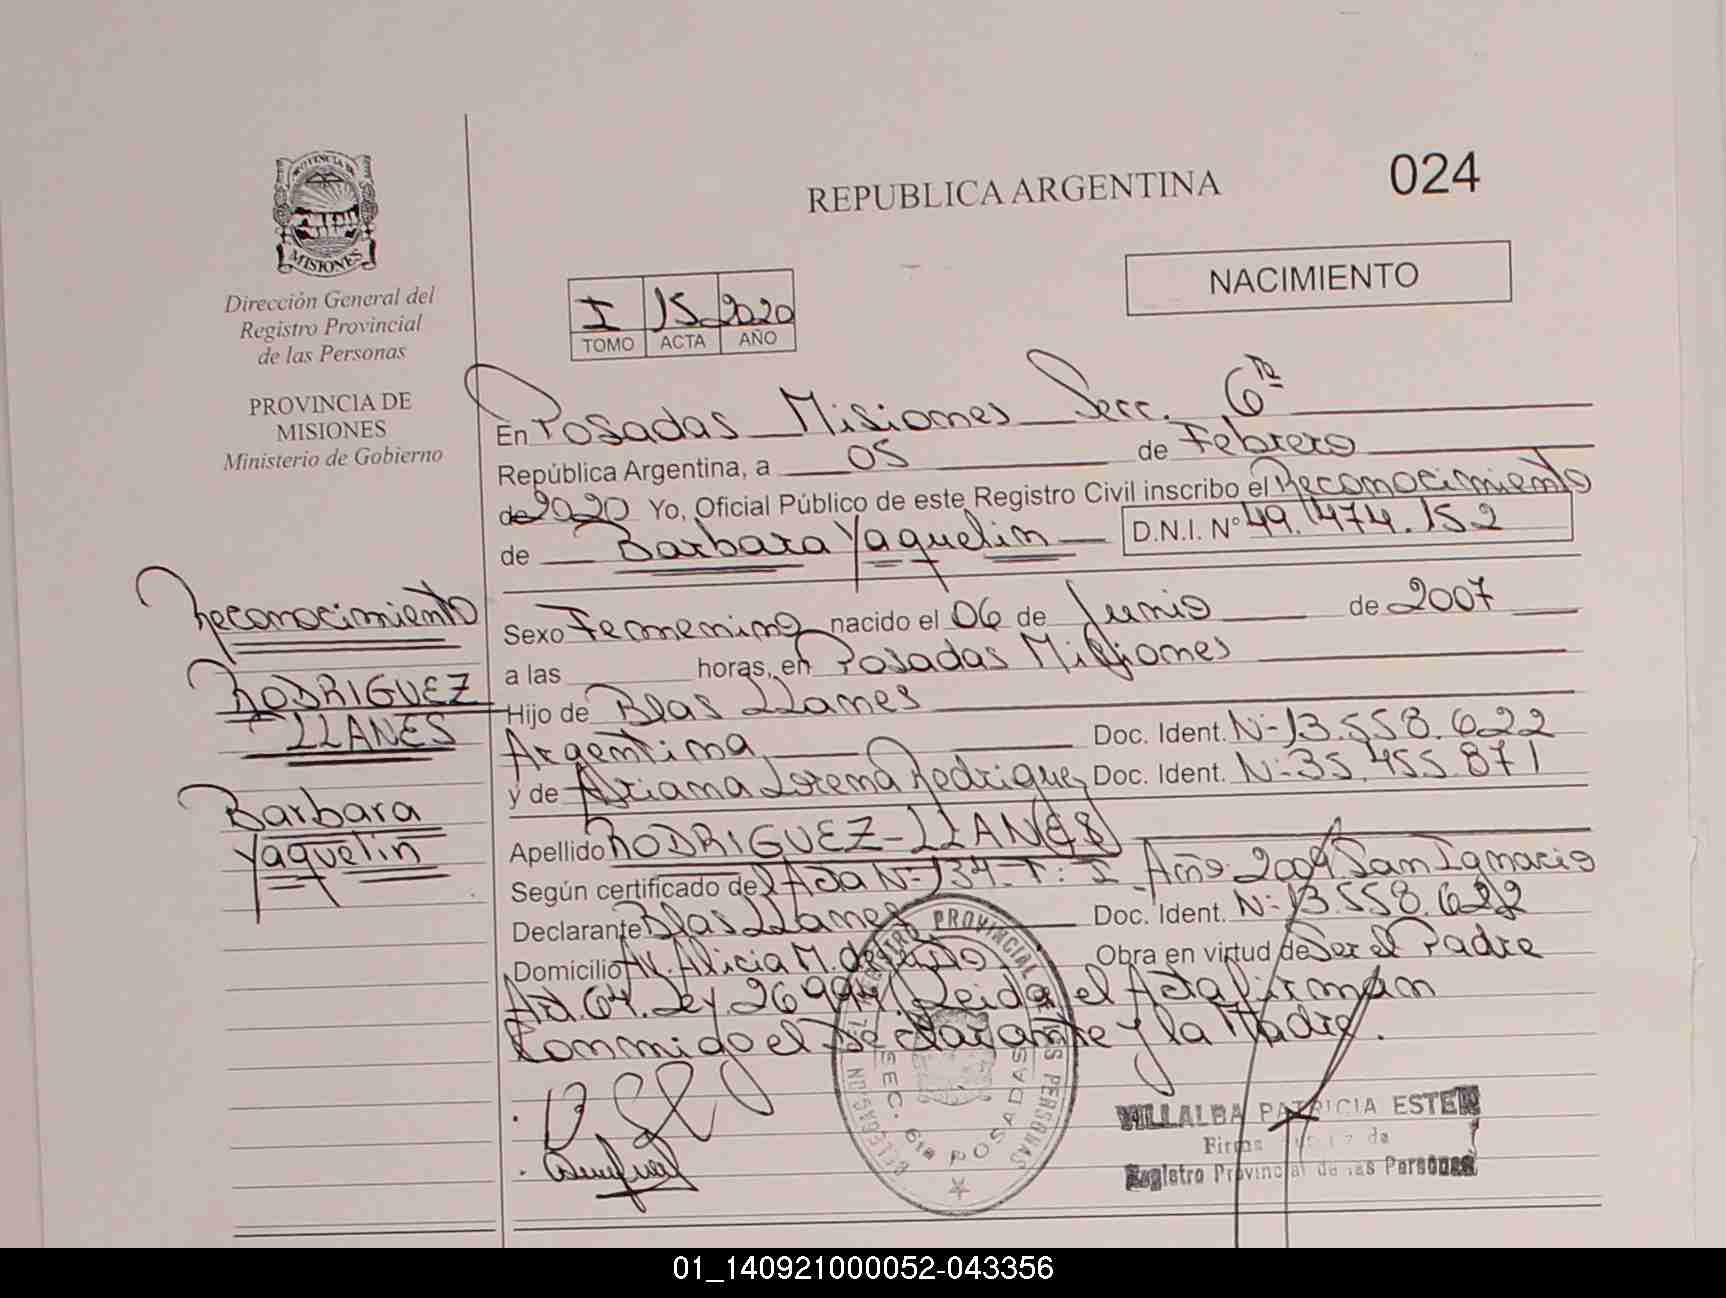 REPUBLICA ARGENTINA
024
NACIMIENTO
PROVINCIA DE
MISIONES
Dirección General del
Registro Provincial
de las Personas
PROVINCIA DE
MISIONES
Ministerio de Gobierno
I 15 2020
TOMO ACTA AÑO
En Posadas Misiones Secc. 6ta
República Argentina, a 05 de Febrero
de 2020 Yo, Oficial Público de este Registro Civil inscribo el Reconocimiento
de Barbara Yaquelin D.N.I. Nº 49.474.152
Sexo Femenino nacido el 06 de Junio de 2007
a las horas, en Posadas Misiones
Hijo de Blas LLanes
Argentina Doc. Ident. N- 13.558.622
y de Adriana Lorena Rodriguez Doc. Ident. N- 35.455.871
Apellido RODRIGUEZ - LLANES
Según certificado del Acta N- 134 - T: I Año: 2009 San Ignacio
Declarante Blas LLanes Doc. Ident. N- 13.558.622
Domicilio Av. Alicia M. de Justo Obra en virtud de Ser el Padre
Art. 64. Ley 26.994. Leida el Acta firman
Conmigo el Declarante y la Madre.
Reconocimiento
RODRIGUEZ
LLANES
Barbara
Yaquelin
REGISTRO PROVINCIAL DE LAS PERSONAS
DELEGACION
SEC. 6ta POSADAS
VILLALBA PATRICIA ESTER
Registro Provincial de las Personas
01_140921000052-043356